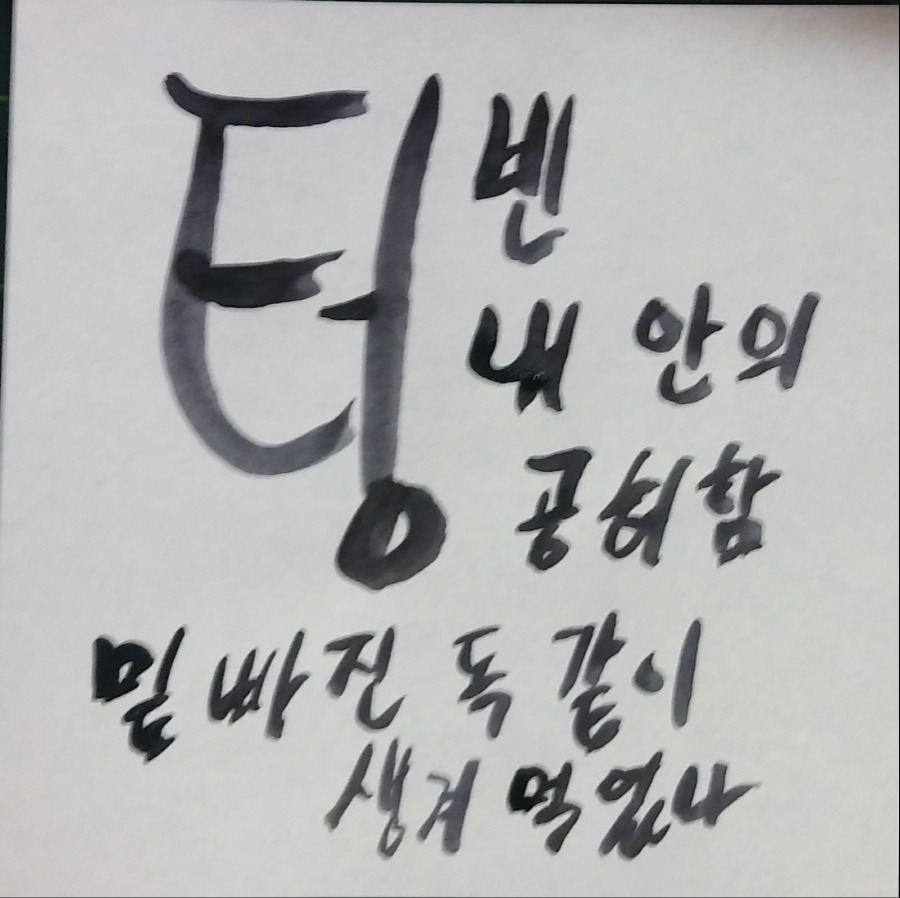 텅 빈
내 안의
공허함
밑 빠진 독 같이
생겨 먹었나